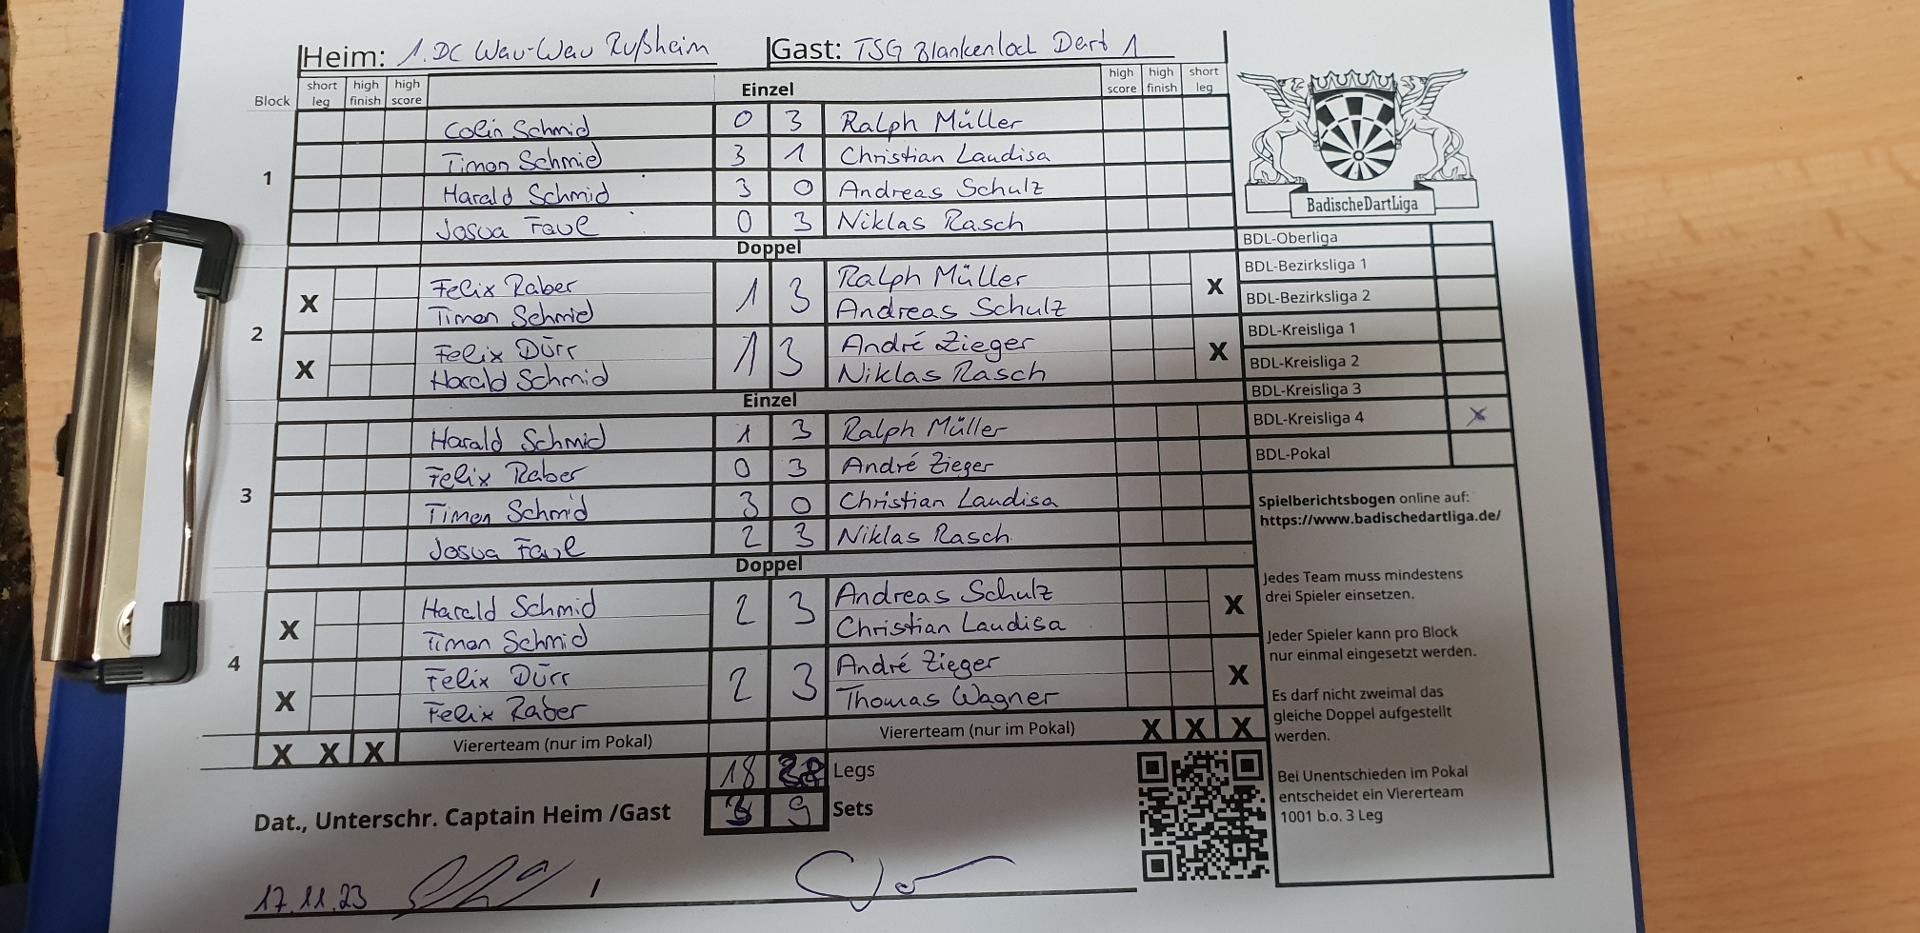 Heim: 1. DC Wau-Wau Rußheim Gast: TSG Blankenloch Dart 1
Block short leg high finish high score Einzel high score high finish short leg
1
Colin Schmid 0 3 Ralph Müller
Timon Schmid 3 1 Christian Laudisa
Harald Schmid 3 0 Andreas Schulz
Josua Faul 0 3 Niklas Rasch
Doppel
2
X Felix Raber 1 3 Ralph Müller X
Timon Schmid Andreas Schulz
X Felix Dürr 1 3 André Zieger X
Harald Schmid Niklas Rasch
Einzel
3
Harald Schmid 1 3 Ralph Müller
Felix Raber 0 3 André Zieger
Timon Schmid 3 0 Christian Laudisa
Josua Faul 2 3 Niklas Rasch
Doppel
4
X Harald Schmid 2 3 Andreas Schulz X
Timon Schmid Christian Laudisa
X Felix Dürr 2 3 André Zieger X
Felix Raber Thomas Wagner
X X X Viererteam (nur im Pokal) Viererteam (nur im Pokal) X X X
18 28 Legs
3 9 Sets
Dat., Unterschr. Captain Heim /Gast
17.11.23 /
BadischeDartLiga
BDL-Oberliga
BDL-Bezirksliga 1
BDL-Bezirksliga 2
BDL-Kreisliga 1
BDL-Kreisliga 2
BDL-Kreisliga 3
BDL-Kreisliga 4 X
BDL-Pokal
Spielberichtsbogen online auf:
https://www.badischedartliga.de/
Jedes Team muss mindestens
drei Spieler einsetzen.
Jeder Spieler kann pro Block
nur einmal eingesetzt werden.
Es darf nicht zweimal das
gleiche Doppel aufgestellt
werden.
Bei Unentschieden im Pokal
entscheidet ein Viererteam
1001 b.o. 3 Leg